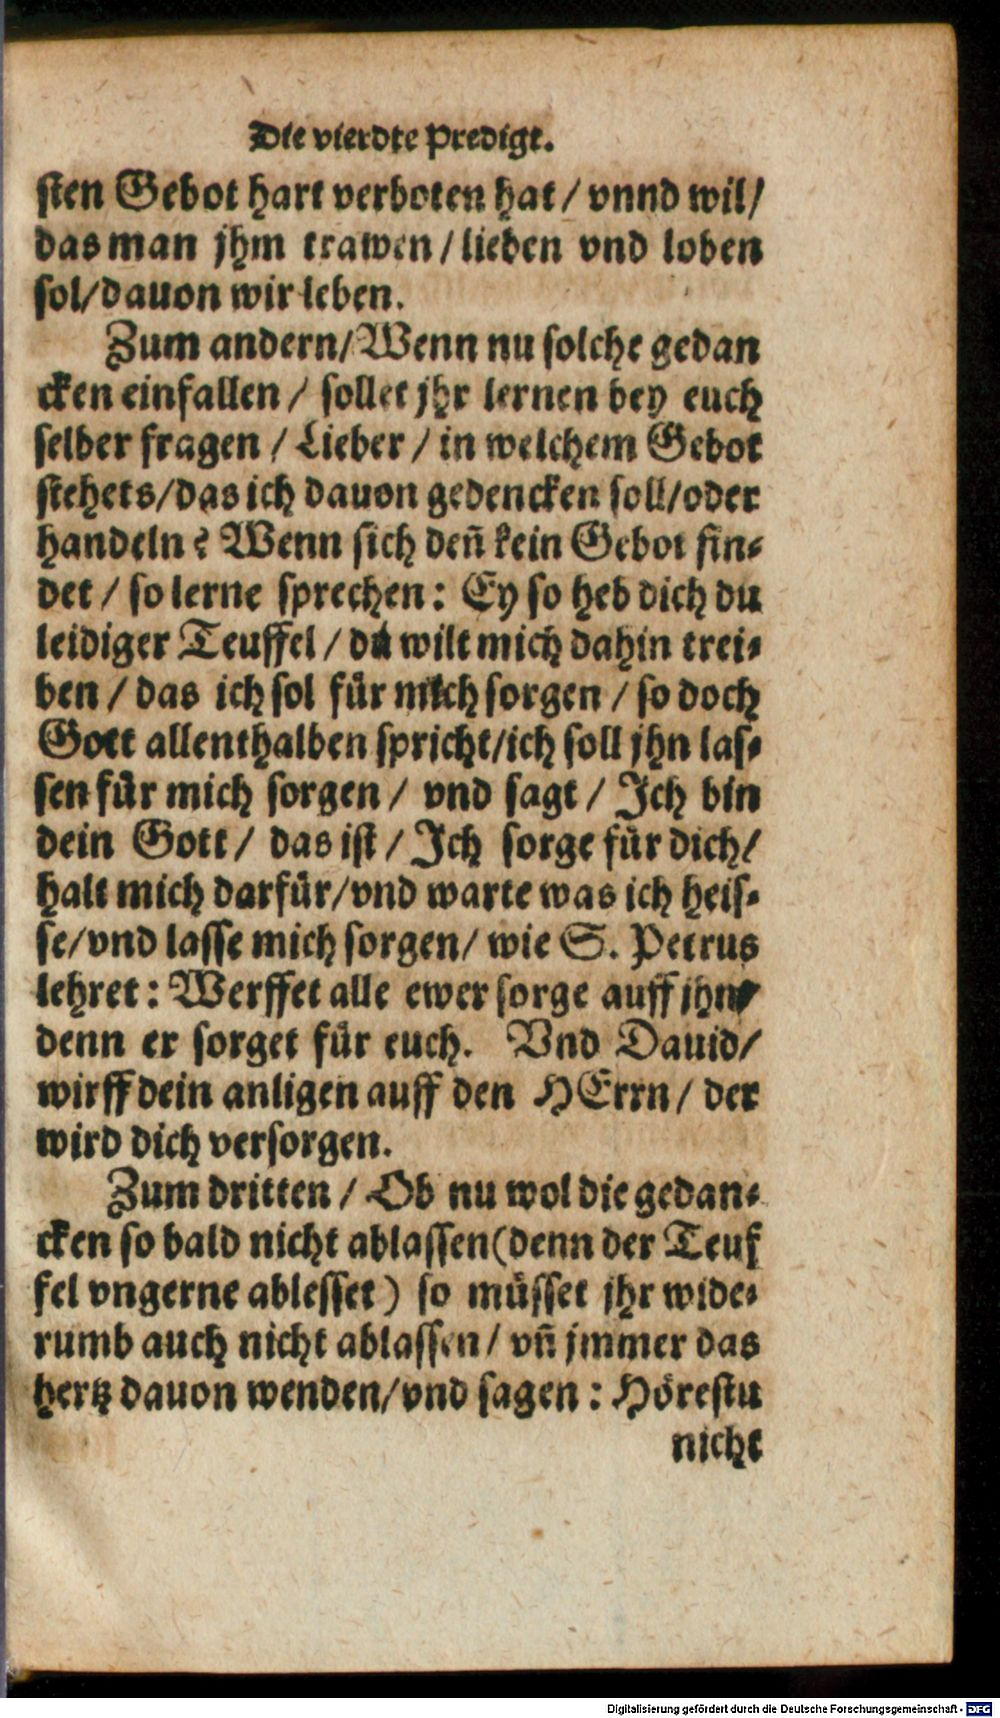 Die vierdte Predigt.
sten Gebot hart verboten hat / vnnd wil /
das man jhm trawen / lieben vnd loben
sol / dauon wir leben.
Zum andern / Wenn nu solche gedan
cken einfallen / sollet jhr lernen bey euch
selber fragen / Lieber / in welchem Gebot
stehets / das ich dauon gedencken soll / oder
handeln? Wenn sich deñ kein Gebot fin-
det / so lerne sprechen: Ey so heb dich du
leidiger Teuffel / du wilt mich dahin trei-
ben / das ich sol für mich sorgen / so doch
Gott allenthalben spricht / ich soll jhn las-
sen für mich sorgen / vnd sagt / Ich bin
dein Gott / das ist / Ich sorge für dich /
halt mich darfür / vnd warte was ich heis-
se / vnd lasse mich sorgen / wie S. Petrus
lehret: Werffet alle ewer sorge auff jhn /
denn er sorget für euch. Vnd Dauid /
wirff dein anligen auff den HErrn / der
wird dich versorgen.
Zum dritten / Ob nu wol die gedan-
cken so bald nicht ablassen (denn der Teuf
fel vngerne ablesset) so müsset jhr wide-
rumb auch nicht ablassen / vñ jmmer das
hertz dauon wenden / vnd sagen: Hörestu
nicht
Digitalisierung gefördert durch die Deutsche Forschungsgemeinschaft - DFG